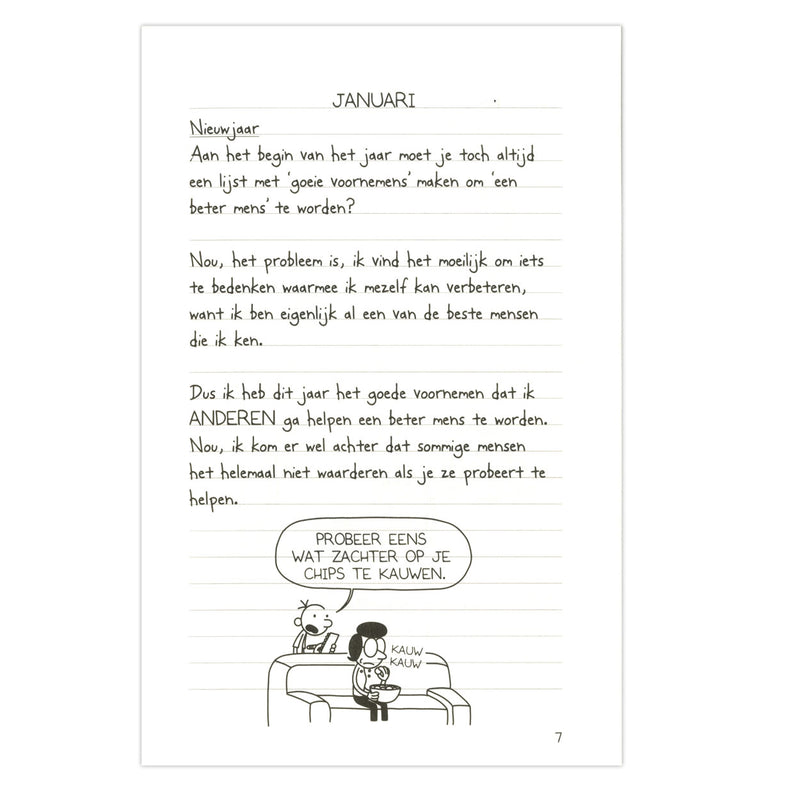 JANUARI
Nieuwjaar
Aan het begin van het jaar moet je toch altijd
een lijst met 'goeie voornemens' maken om 'een
beter mens' te worden?
Nou, het probleem is, ik vind het moeilijk om iets
te bedenken waarmee ik mezelf kan verbeteren,
want ik ben eigenlijk al een van de beste mensen
die ik ken.
Dus ik heb dit jaar het goede voornemen dat ik
ANDEREN ga helpen een beter mens te worden.
Nou, ik kom er wel achter dat sommige mensen
het helemaal niet waarderen als je ze probeert te
helpen.
PROBEER EENS
WAT ZACHTER OP JE
CHIPS TE KAUWEN.
KAUW
KAUW
7